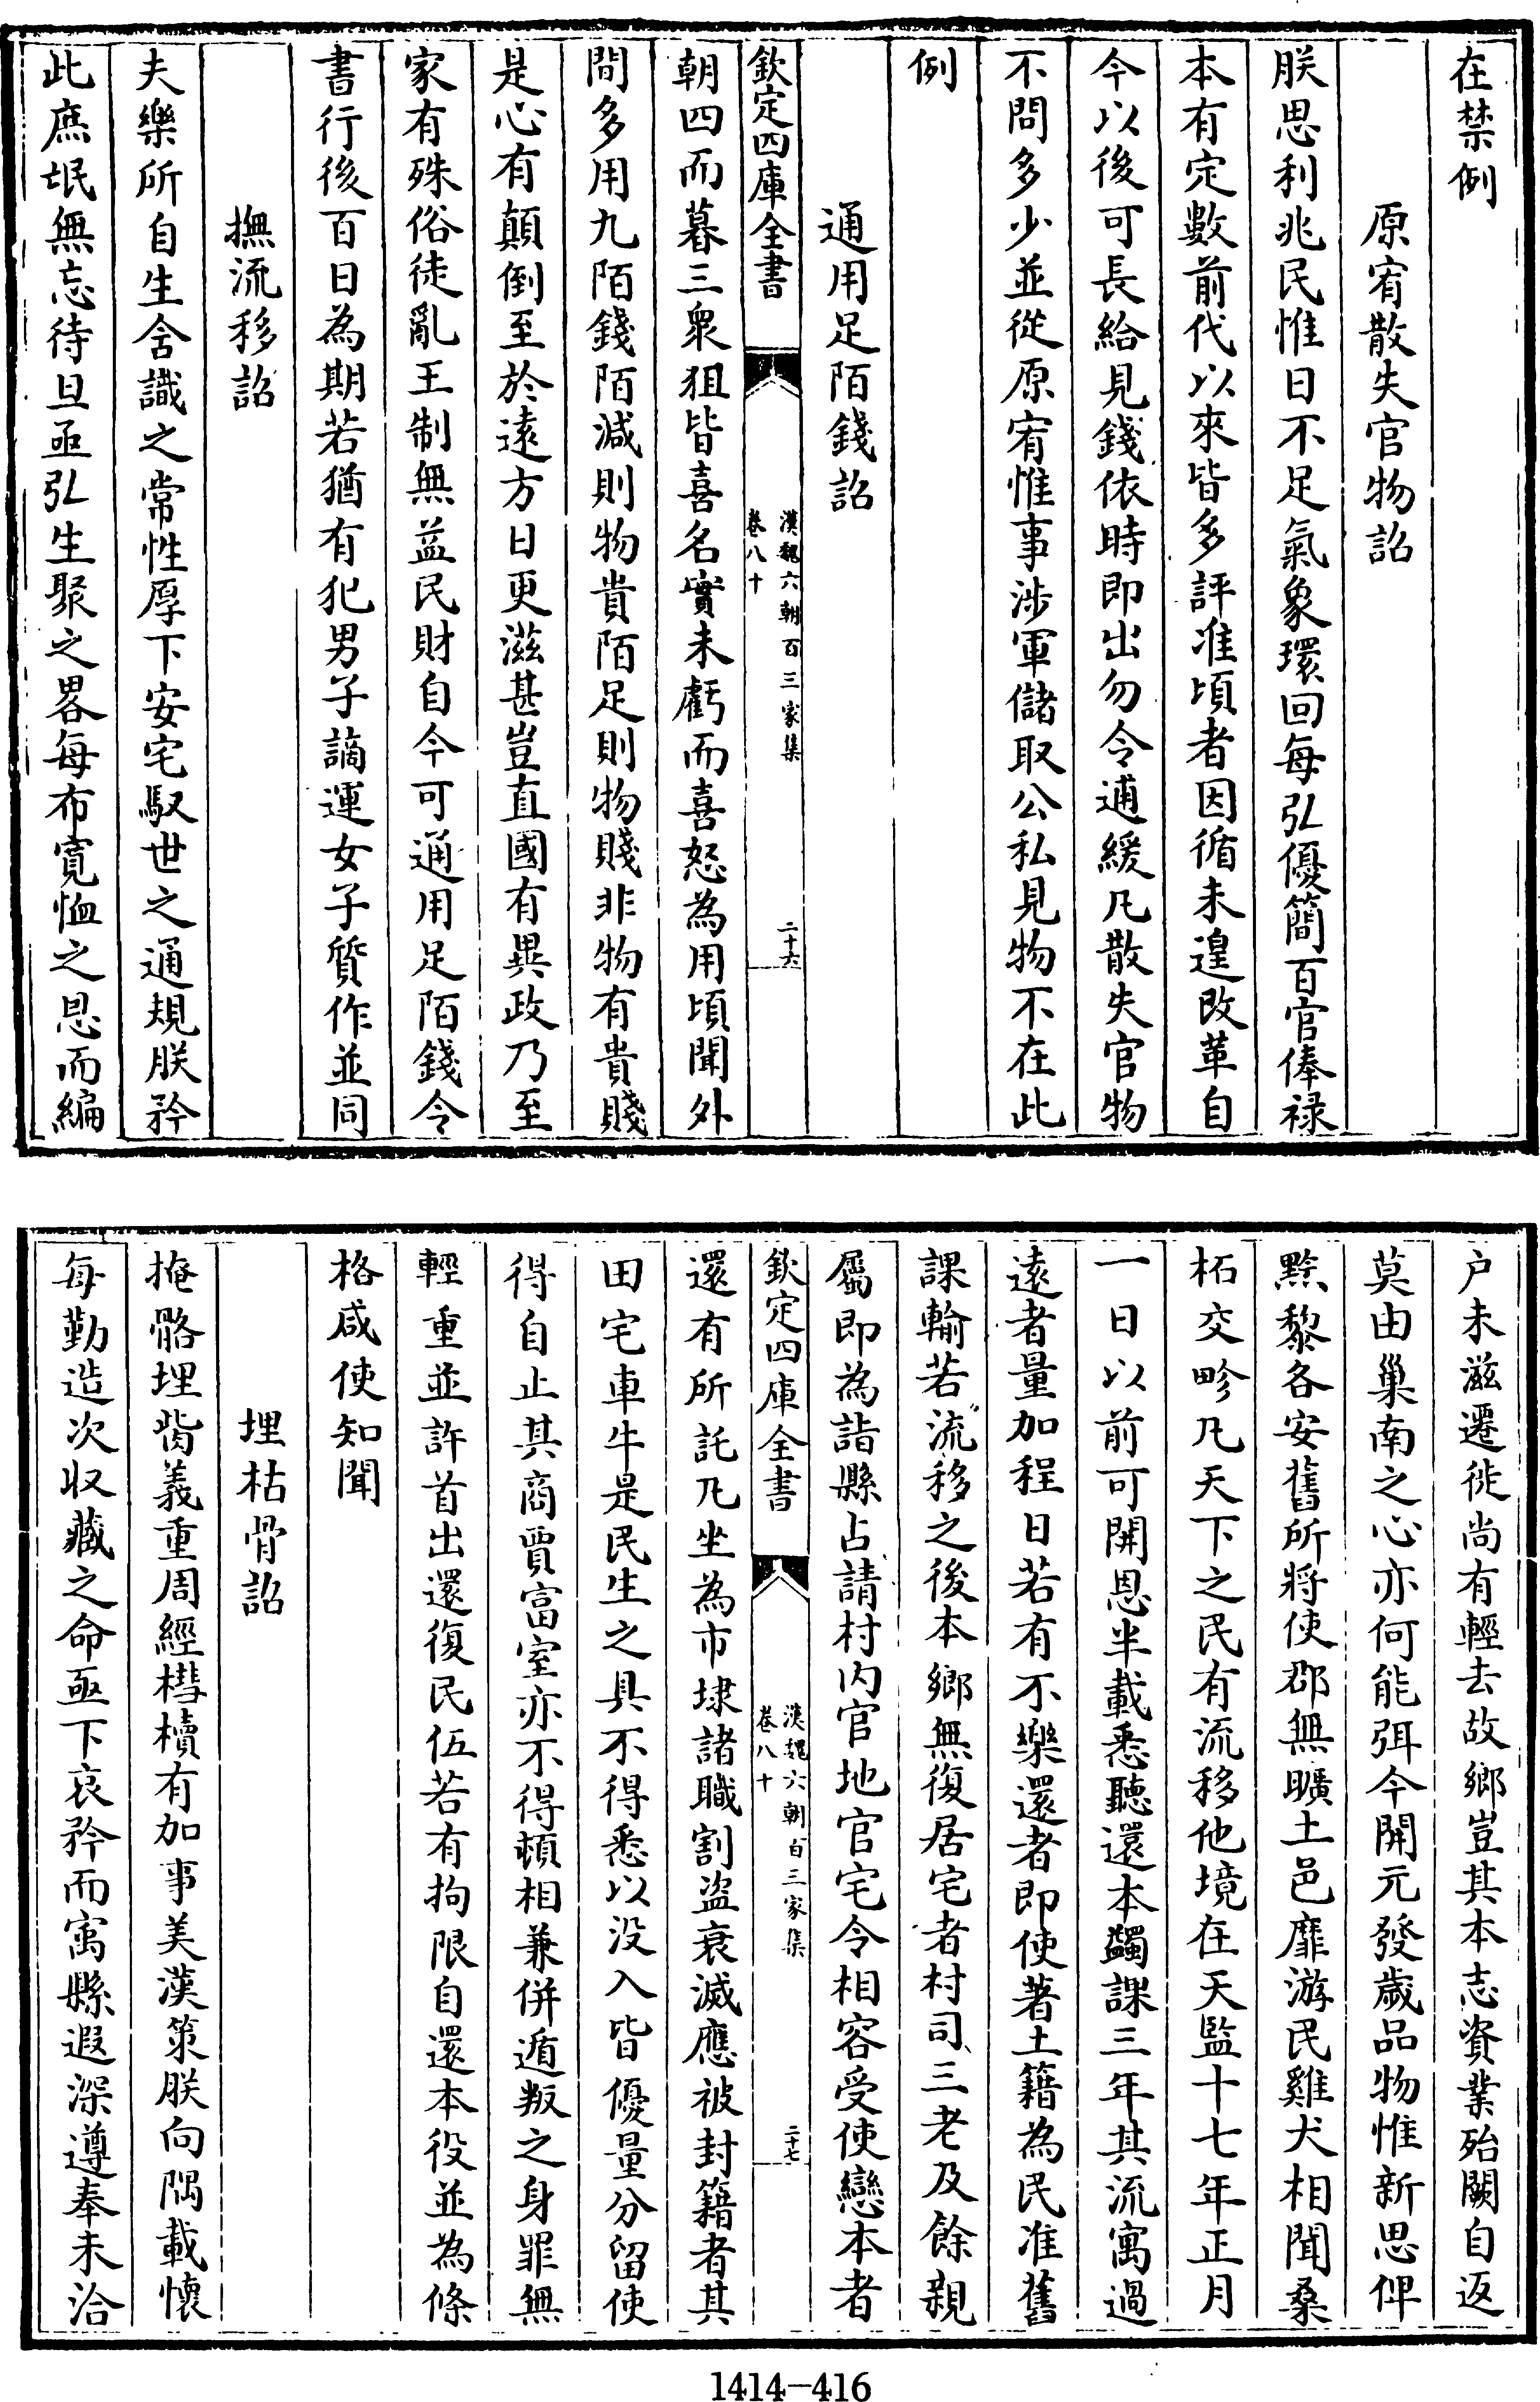 在禁例
原宥散失官物詔
朕思利兆民惟日不足氣象環回每弘優簡百官俸禄
本有定數前代以來皆多評准頃者因循未遑改革自
今以後可長給見錢依時即出勿令逋緩凡散失官物
不問多少並從原宥惟事涉軍儲取公私見物不在此
例
通用足陌錢詔
欽定四庫全書
漢魏六朝百三家集
卷八十
二十六
朝四而暮三衆狙皆喜名實未虧而喜怒為用頃聞外
間多用九陌錢陌減則物貴陌足則物賤非物有貴賤
是心有顛倒至於逺方日更滋甚豈直國有異政乃至
家有殊俗徒亂王制無益民財自今可通用足陌錢令
書行後百日為期若猶有犯男子謫運女子質作並同
撫流移詔
夫樂所自生含識之常性厚下安宅馭世之通規朕矜
此庶氓無忘待旦亟弘生聚之畧每布寛恤之恩而編
户未滋遷徙尚有輕去故鄉豈其本志資業殆闕自返
莫由巢南之心亦何能弭今開元發歳品物惟新思俾
黔黎各安舊所將使郡無曠土邑靡游民雞犬相聞桑
柘交畛凡天下之民有流移他境在天監十七年正月
一日以前可開恩半載悉聽還本蠲課三年其流寓過
逺者量加程日若有不樂還者即使著土籍為民准舊
課輸若流移之後本鄉無復居宅者村司三老及餘親
屬即為詣縣占請村内官地官宅令相容受使戀本者
欽定四庫全書
漢魏六朝百三家集
卷八十
二十七
還有所託凡坐為市埭諸職割盗衰滅應被封籍者其
田宅車牛是民生之具不得悉以没入皆優量分留使
得自止其商賈富室亦不得頓相兼併遁叛之身罪無
輕重並許首出還復民伍若有拘限自還本役並為條
格咸使知聞
埋枯骨詔
掩骼埋胔義重周經槥櫝有加事美漢策朕向隅載懷
每勤造次收藏之命亟下哀矜而寓縣遐深遵奉未洽
1414-416